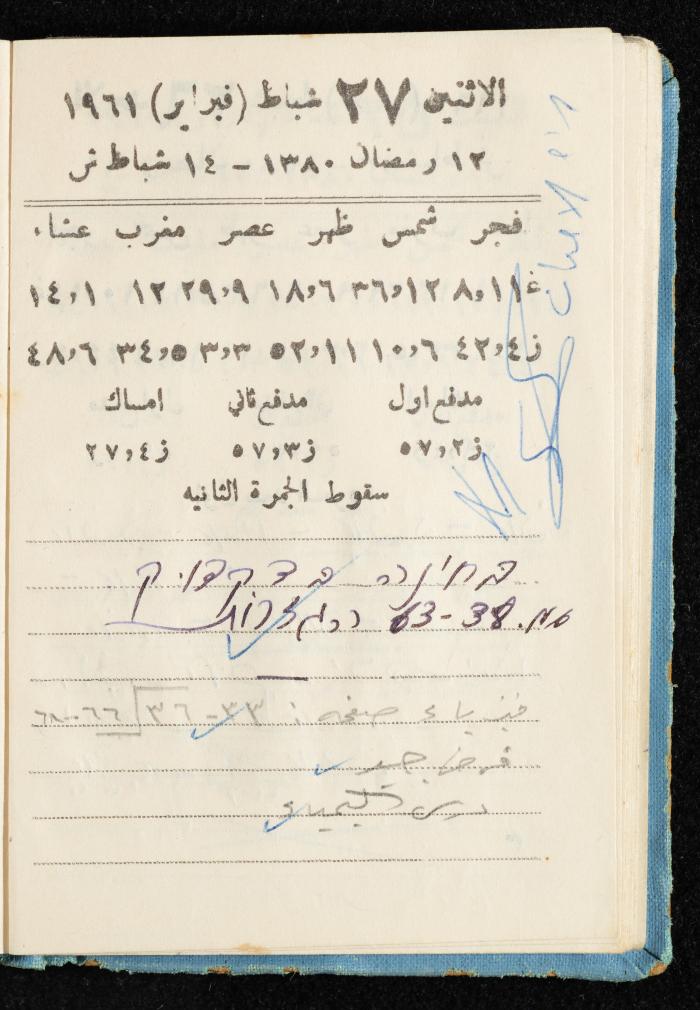 الاثنين ٢٧ شباط (فبراير) ١٩٦١
١٢ رمضان ١٣٨٠ - ١٤ شباط ش
فجر شمس ظهر عصر مغرب عشاء
غ ١١,٨ ١٢,٣٦ ٦,١٨ ٩,٢٩ ١٢ ١,١٤
ز ٤,٤٢ ٦,١٠ ١١,٥٢ ٣,٣ ٥,٣٤ ٦,٤٨
مدفع اول مدفع ثاني امساك
ز ٢,٥٧ ز ٣,٥٧ ز ٤,٢٧
سقوط الجمرة الثانيه
בחינה בדקדוק
עמ. 38-63
فيزياء صفحه : ٣٣-٣٦ ٦٦-٦٨
درس الكيمياء